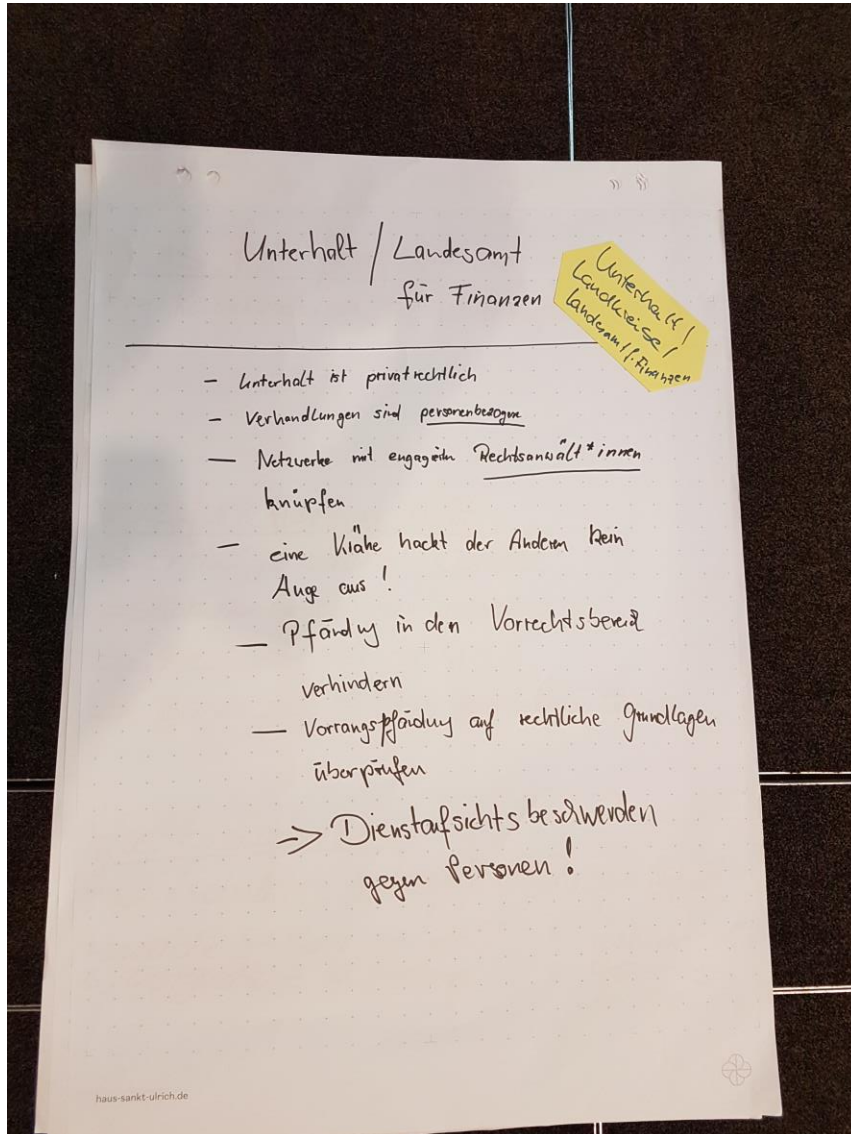 Unterhalt / Landesamt
für Finanzen
Unterhalt /
Landkreise /
Landesamt f. Finanzen
- Unterhalt ist privatrechtlich
- Verhandlungen sind personenbezogen
- Netzwerke mit engagierten Rechtsanwält*innen
knüpfen
- eine Krähe hackt der Anderen kein
Auge aus !
- Pfändung in den Vorrechtsbereich
verhindern
- Vorrangspfändung auf rechtliche Grundlagen
überprüfen
=> Dienstaufsichtsbeschwerden
gegen Personen !
haus-sankt-ulrich.de